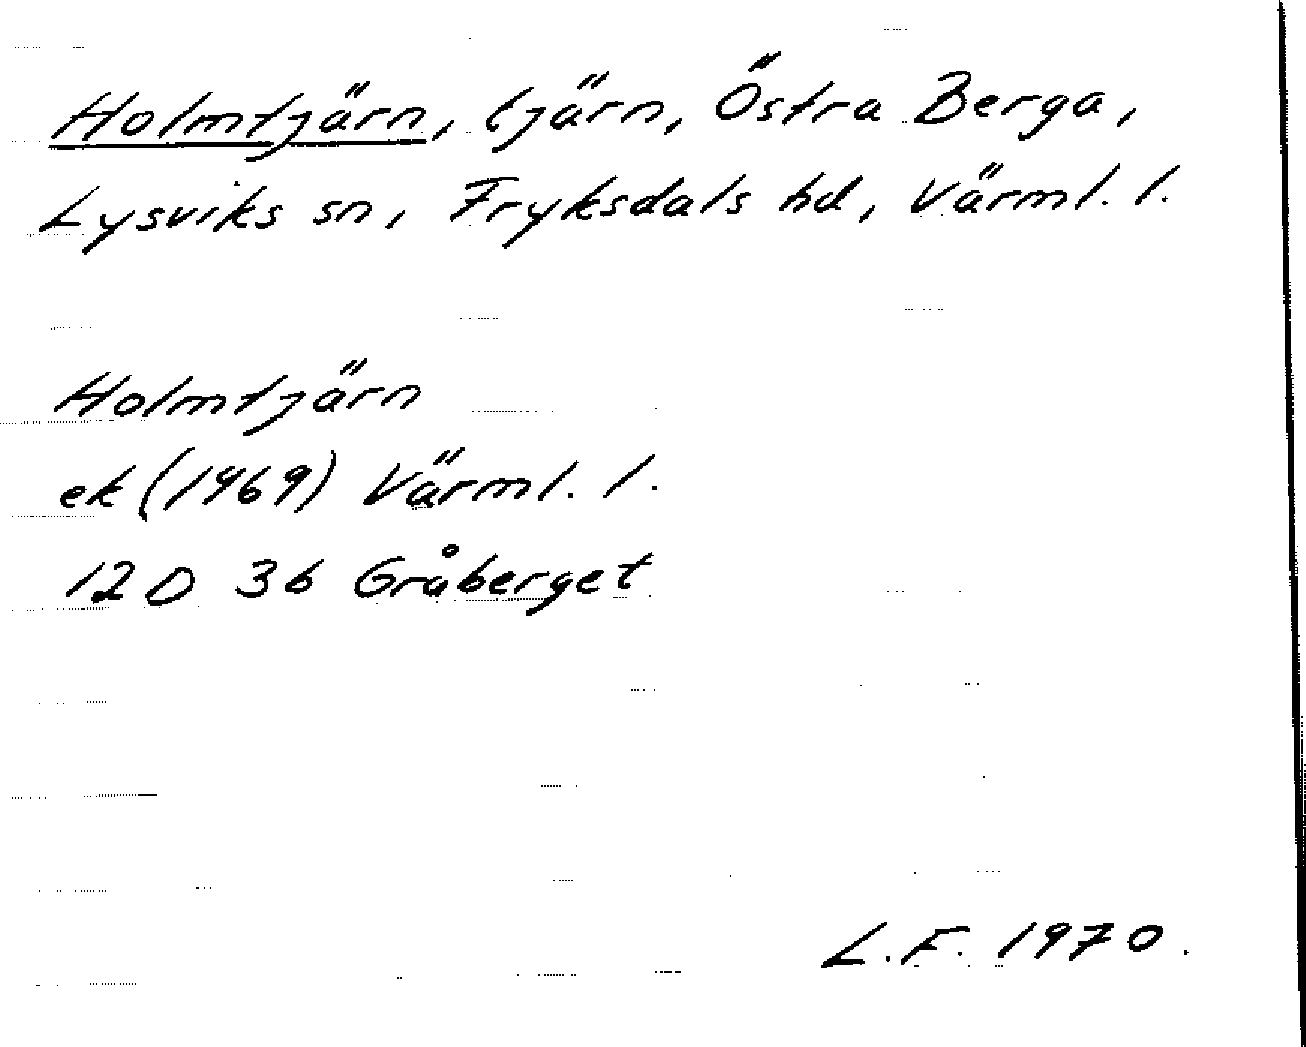 Holmtjärn, tjärn, Östra Berga,
Lysviks sn, Fryksdals hd, Värml. l.
Holmtjärn
ek (1969) Värml. l.
12 D 3b Gråberget
L.F. 1970.